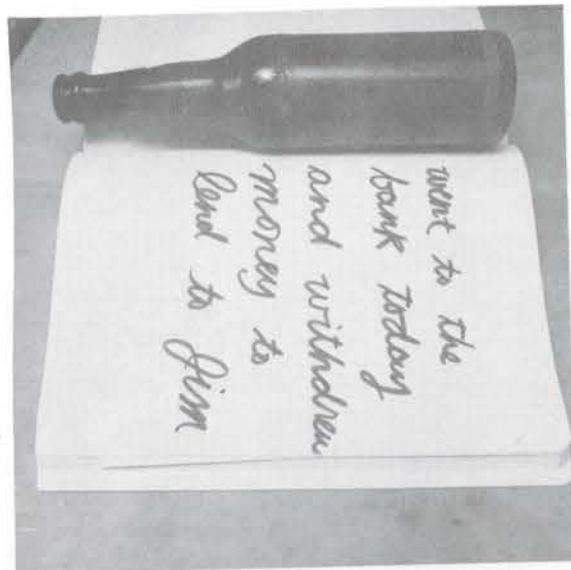 went to the
bank today
and withdrew
money to
lend to Jim